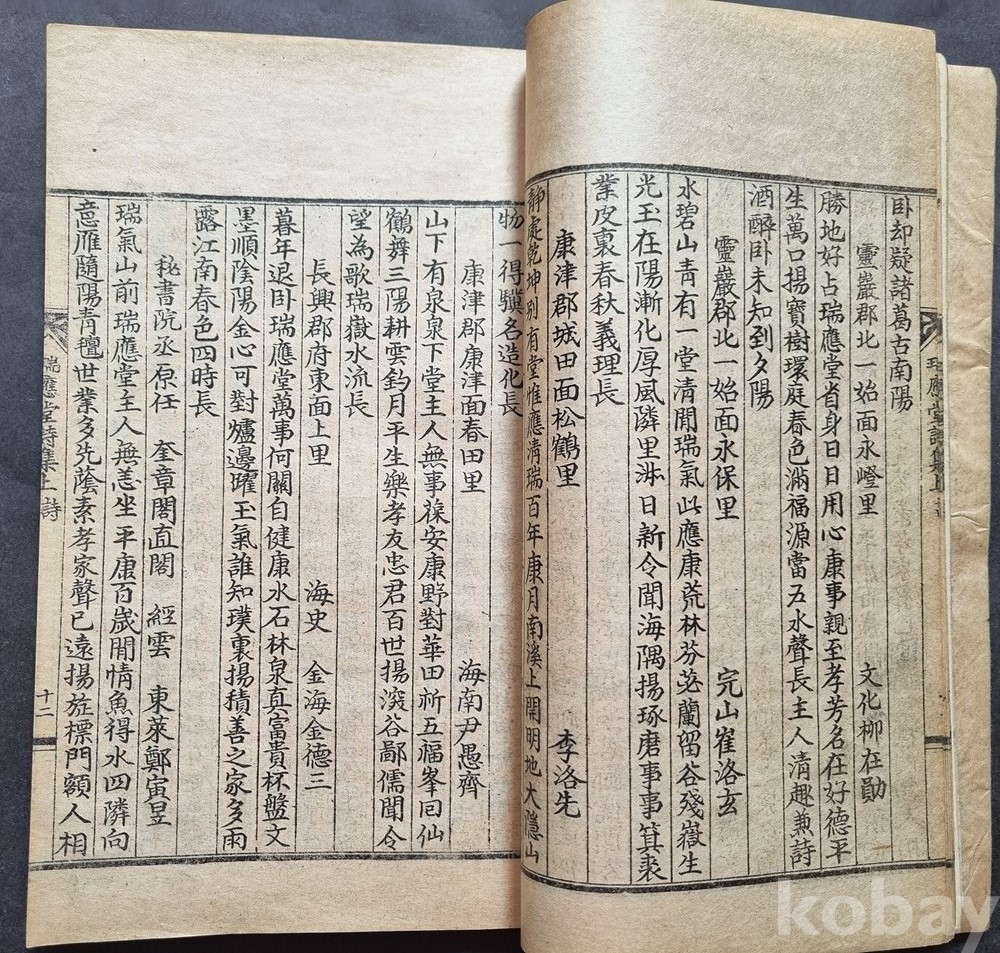 臥却疑諸葛古南陽
靈巖郡北一始面永嶝里
文化柳在勛
勝地好占瑞應堂省身日日用心康事親至孝芳名在好德平
生萬口揚寶樹環庭春色滿福源當五水聲長主人清趣兼詩
酒醉臥未知到夕陽
靈巖郡北一始面永保里
完山崔洛玄
水碧山青有一堂清閒瑞氣此應康荒林芬苾蘭留谷殘嶽生
光玉在陽漸化厚風隣里渉日新令聞海隅揚琢磨事事箕裘
業皮裏春秋義理長
康津郡城田面松鶴里
李洛先
靜處乾坤別有堂惟應清瑞百年康月南溪上開明地大隱山
物一得驥名造化長
康津郡康津面春田里
海南尹愚齊
山下有泉泉下堂主人無事葆安康野對華田祈五福峯回仙
鶴舞三陽耕雲釣月平生樂孝友忠君百世揚深谷鄙儒聞令
望為歌瑞嶽水流長
長興郡府東面上里
海史 金海金德三
暮年退臥瑞應堂萬事何關自健康水石林泉真富貴杯盤文
墨順陰陽金心可對爐邊躍玉氣誰知璞裏揚積善之家多雨
露江南春色四時長
秘書院丞原任 奎章閣直閣 經雲 東萊鄭寅昱
瑞氣山前瑞應堂主人無恙坐平康百歲閒情魚得水四隣向
意雁隨陽青氊世業多先蔭素孝家聲已遠揚旌標門額人相
瑞應堂詩集上 詩
十二
kobay